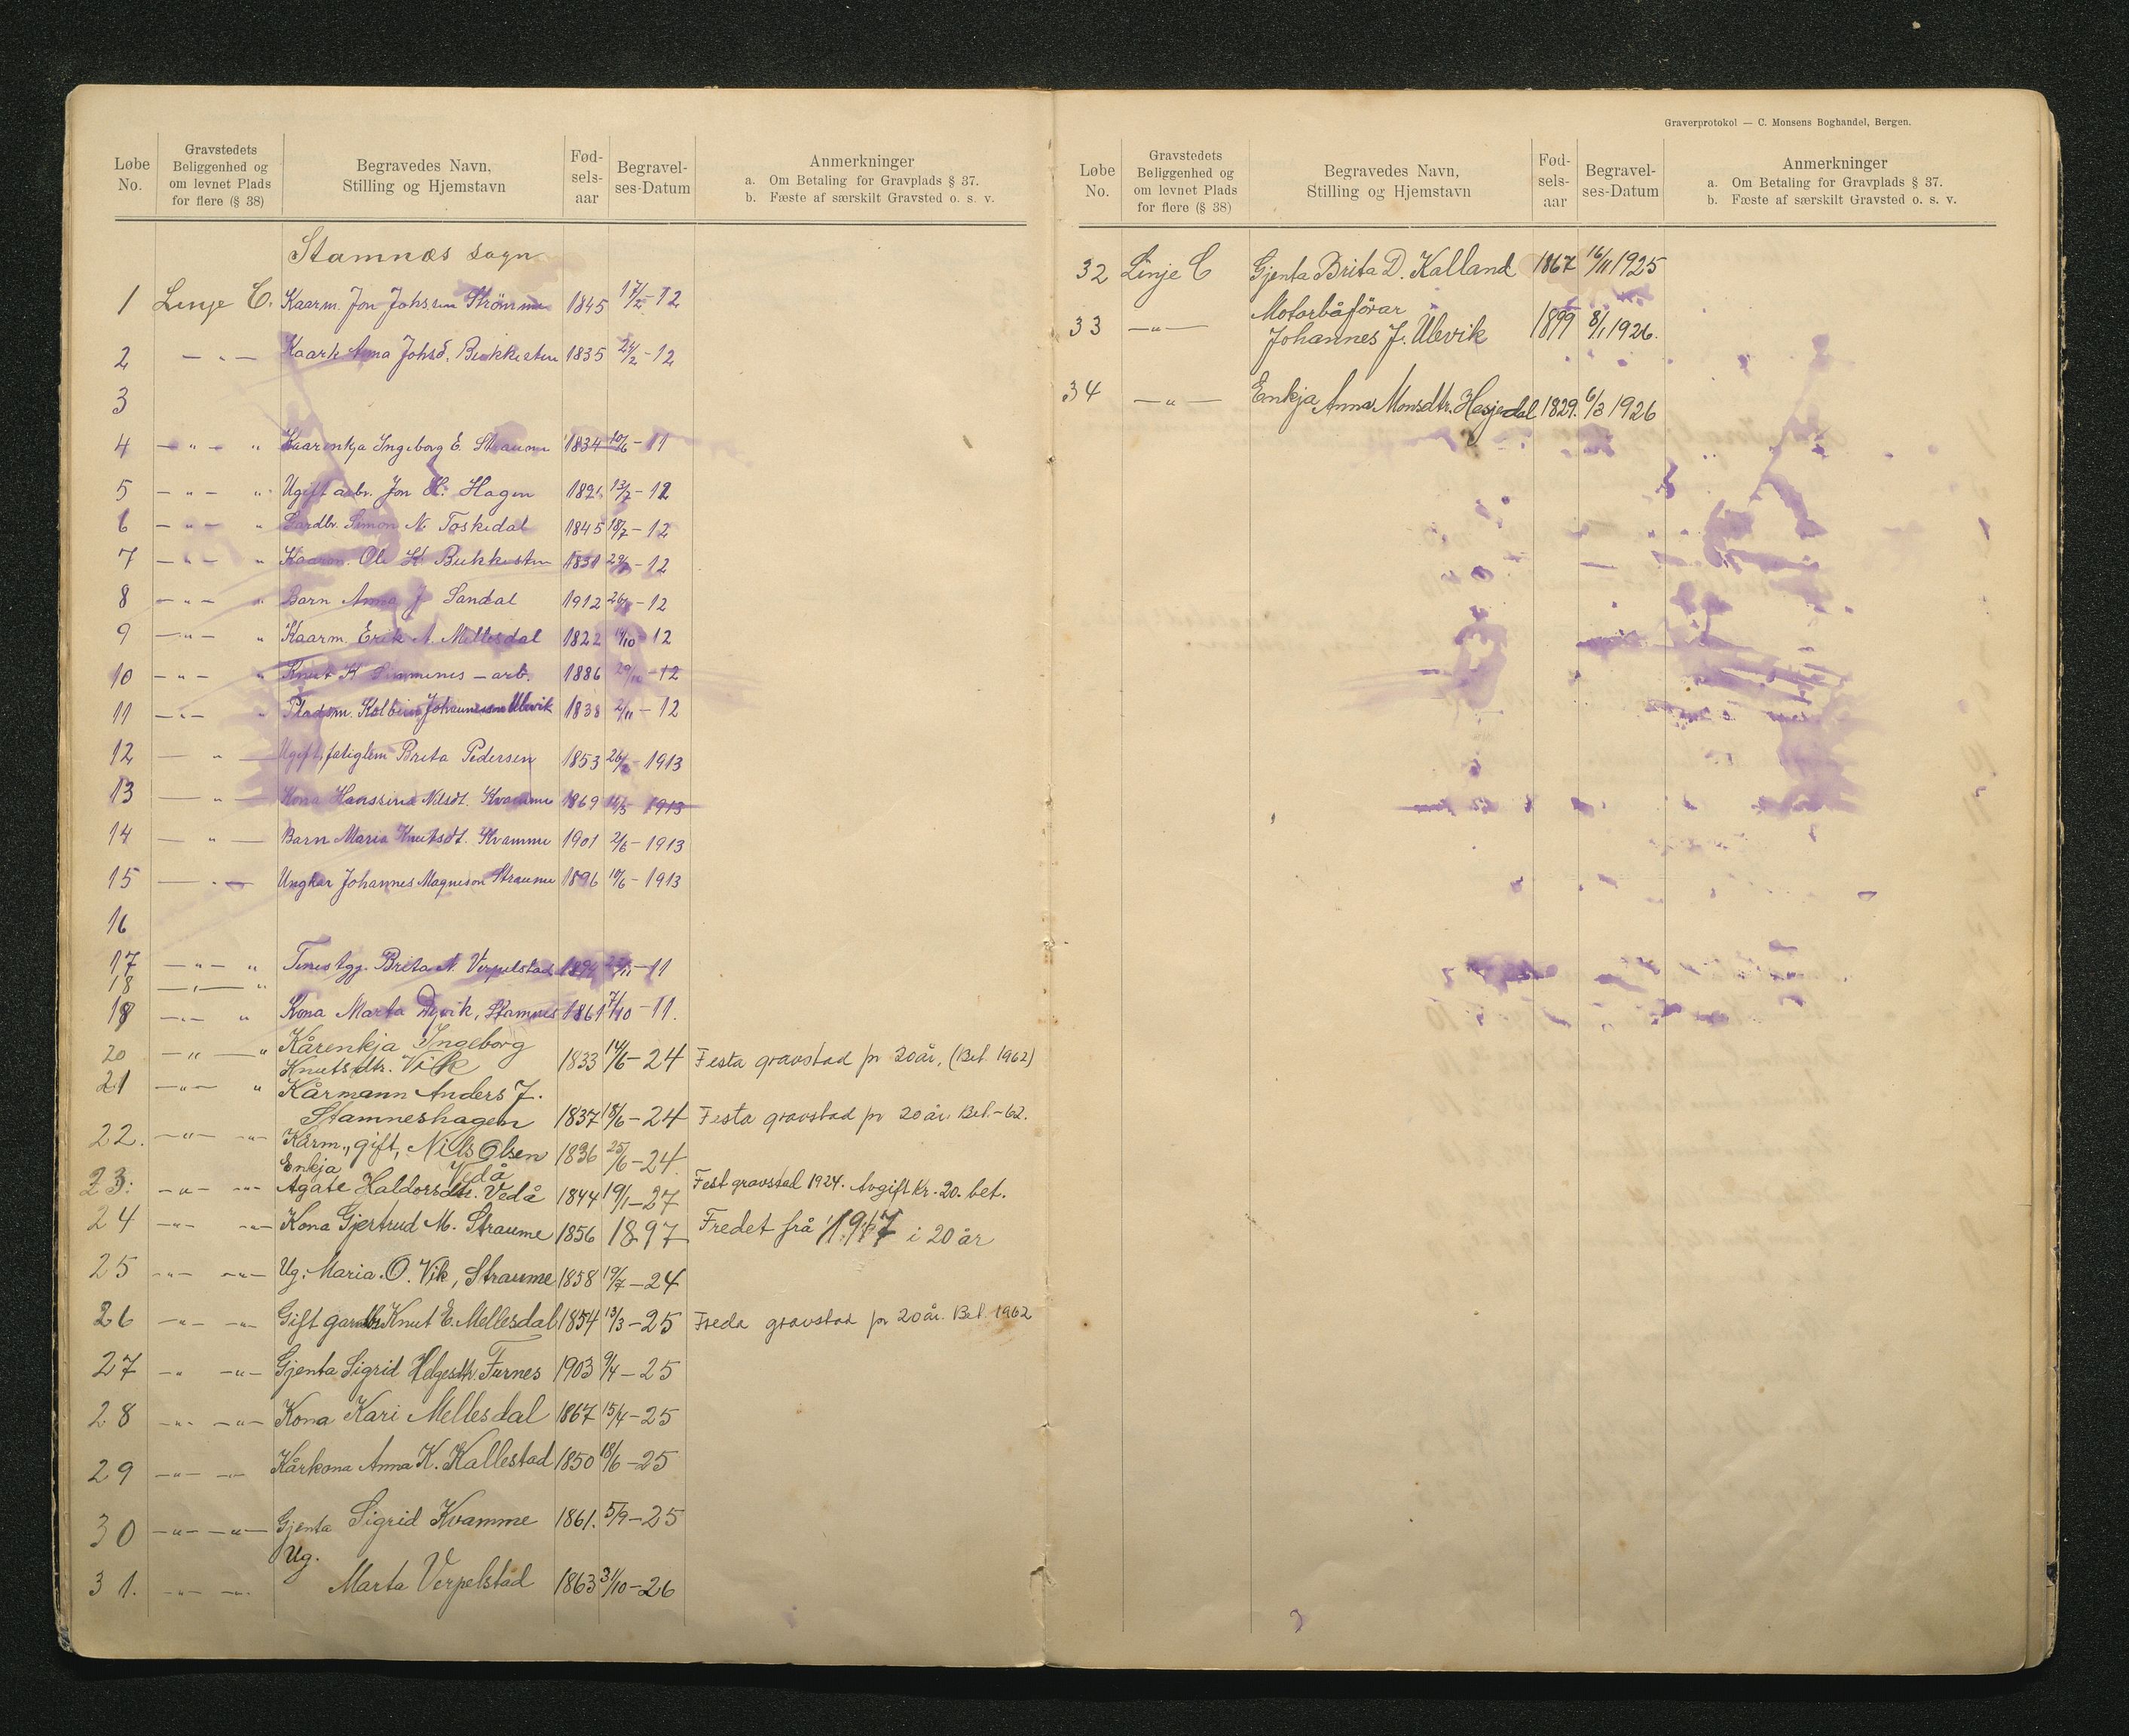 Løbe No. Gravstedets Beliggenhed og om levnet Plads for flere (§ 38) Begravedes Navn, Stilling og Hjemstavn Fød-sels-aar Begravel-ses-Datum Anmerkninger
a. Om Betaling for Gravplads § 37.
b. Fæste af særskilt Gravsted o. s. v.
Stamnæs sogn
1 Linje C. Kaarm. Jon Johssen Strömme 1845 17/2-12
2 — " — Kaark Anna Johsd. Bukkesten 1835 24/2-12
3
4 — " — " Kaarenkja Ingeborg E. Straume 1834 10/6-11
5 — " — " Ugift arb. Jon K. Hagen 13/7-12
6 — " — " Gardbr. Simon N. Toskedal 1845 18/7-12
7 — " — " Kaarm. Ole K Bukkesten 1831 -12
8 — " — " Barn Anna J Sandal 1912 -12
9 — " — " Kaarm. Erik A. Mellesdal 1822 /10-12
10 — " — " Knut K — arb. 1886 -12
11 — " — " Pladsm. Kolbein Johannesen Ulvik 1838 2/11-12
12 — " — Ugift, fatiglem Brita Pedersen 1853 26/2-1913
13 — " — Kona Hanssina Nilsdt. Kvamme 1869 -1913
14 — " — Barn Maria Knutsdt. Kvamme 1901 2/6-1913
15 — " — Ungkar Johannes Magneson Straume 1896 10/6-1913
16
17 — " — " Tenestgj. Brita N. Verpelstad -11
18 — " — "
18 — " — " Kona Marta Dyvik, Stamnes 1861 7/10-11.
20 — " — " Kårenkja Ingeborg
Knutsdtr. Vik 1833 14/6-24 Festa gravstad pr 20 år. (Bet 1962)
21 — " — " Kårmann Anders J.
Stamneshagen 1837 18/6-24 Festa gravstad pr 20 år. Bet.-62.
22. — " — — " — Kårm., gift, Nils Olsen
Vedå 1836 25/6-24.
23: — " — — " — Enkja
Agate Haldorsdtr. Vedå 1844 19/1-27 Fest gravstad 1924. Avgift Kr. 20. bet.
24 — " — — " — Kona Gjertrud M. Straume 1856 1897 Fredet frå 1947 i 20 år
25 — " — — " — Ug. Maria. O. Vik, Straume 1858 19/7-24
26 — " — — " — Gift gardb. Knut E. Mellesdal 1854 13/3-25 Freda gravstad pr 20 år. Bet. 1962
27 — " — " — Gjenta Sigrid Helgesdtr. Furnes 1903 9/4-25
28 — " — — " — Kona Kari Mellesdal 1867 15/4-25
29 — " — — " — Kårkona Anna K. Kallestad 1850 18/6-25
30 — " — — " — Gjenta Sigrid Kvamme 1861. 5/9-25
Ug.
31. — " — — " — Marta Verpelstad 1863 31/10-26
Graverprotokol — C. Monsens Boghandel, Bergen.
Løbe No. Gravstedets Beliggenhed og om levnet Plads for flere (§ 38) Begravedes Navn, Stilling og Hjemstavn Fød-sels-aar Begravel-ses-Datum Anmerkninger
a. Om Betaling for Gravplads § 37.
b. Fæste af særskilt Gravsted o. s. v.
32 Linje C Gjenta Brita D. Kalland 1867 16/11 1925
Motorbåførar
33 — " — Johannes J. Ulevik 1899 8/1 1926.
34 — " — Enkja Anna Monsdtr. Hesjedal 1829. 6/3 1926